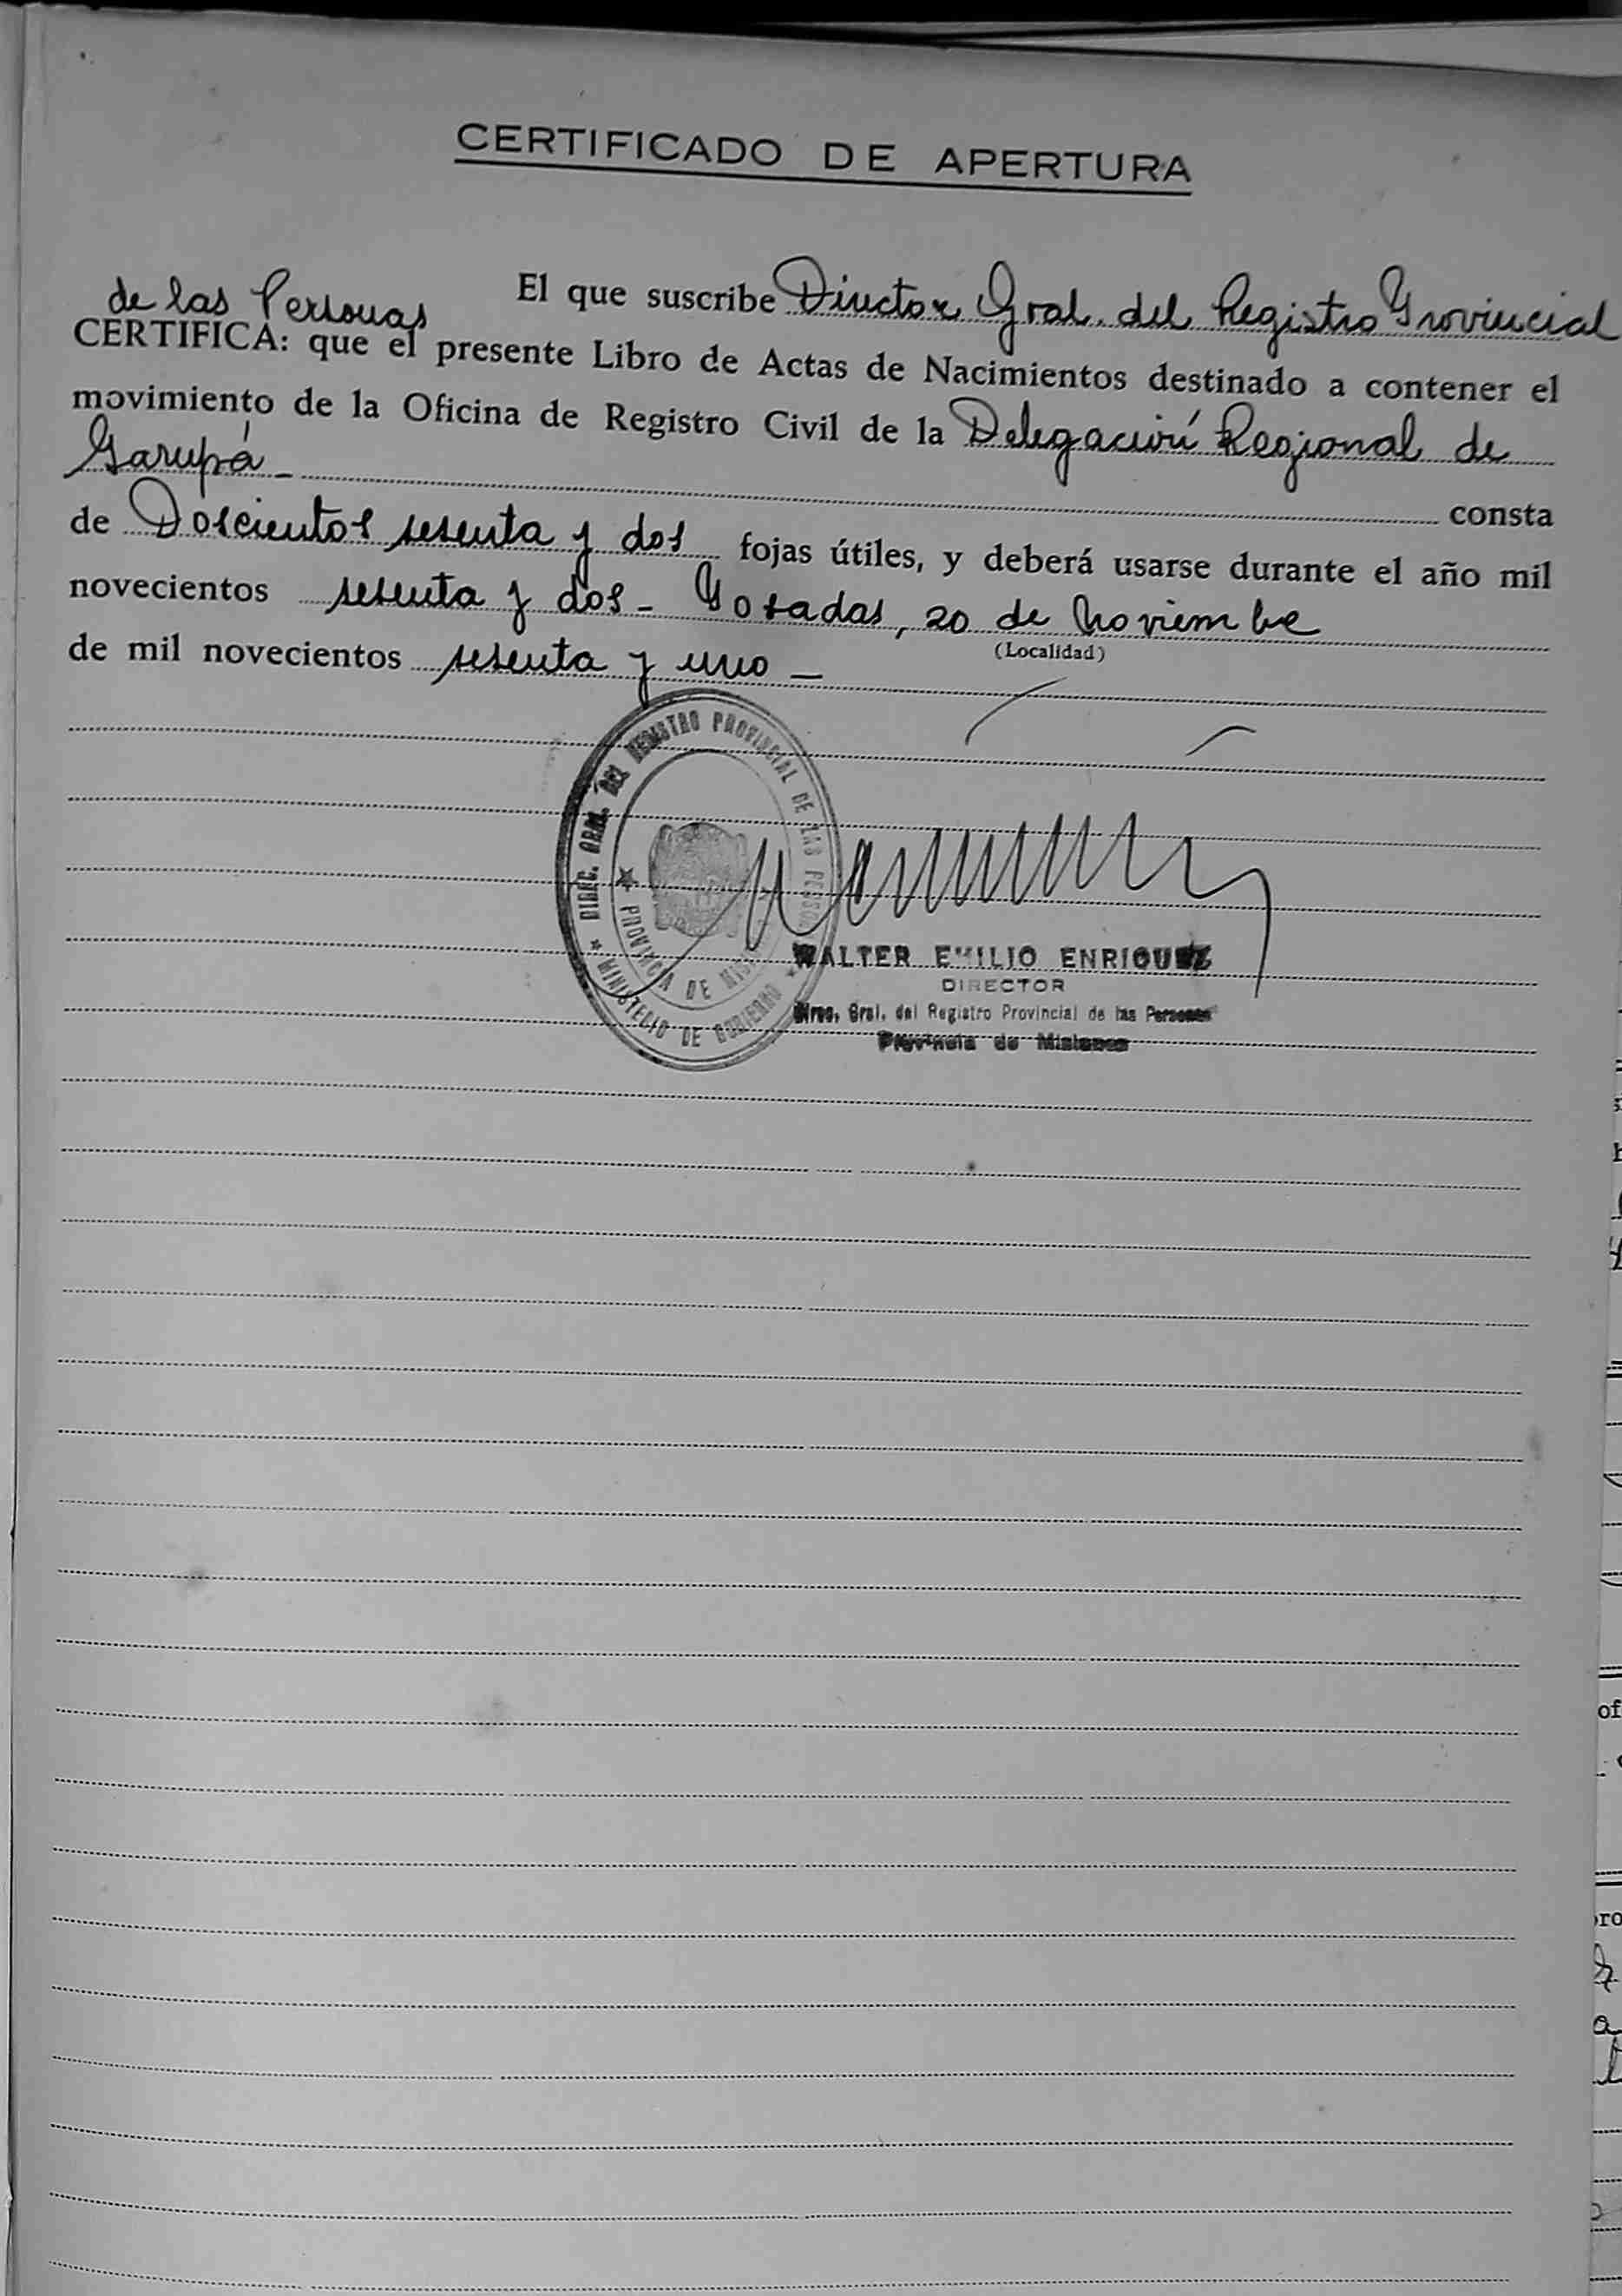 CERTIFICADO DE APERTURA
El que suscribe Director Gral. del Registro Provincial
de las Personas
CERTIFICA: que el presente Libro de Actas de Nacimientos destinado a contener el
movimiento de la Oficina de Registro Civil de la Delegación Regional de
Garupá - consta
de Doscientos sesenta y dos fojas útiles, y deberá usarse durante el año mil
novecientos sesenta y dos - Posadas, 20 de Noviembre
(Localidad)
de mil novecientos sesenta y uno -
DIREC. GRAL. DEL REGISTRO PROVINCIAL DE LAS PERSON
PROVINCIA DE MIS
MINISTERIO DE GOBIERNO
WALTER EMILIO ENRIQUEZ
DIRECTOR
Direc. Gral. del Registro Provincial de las Personas
Provincia de Misiones